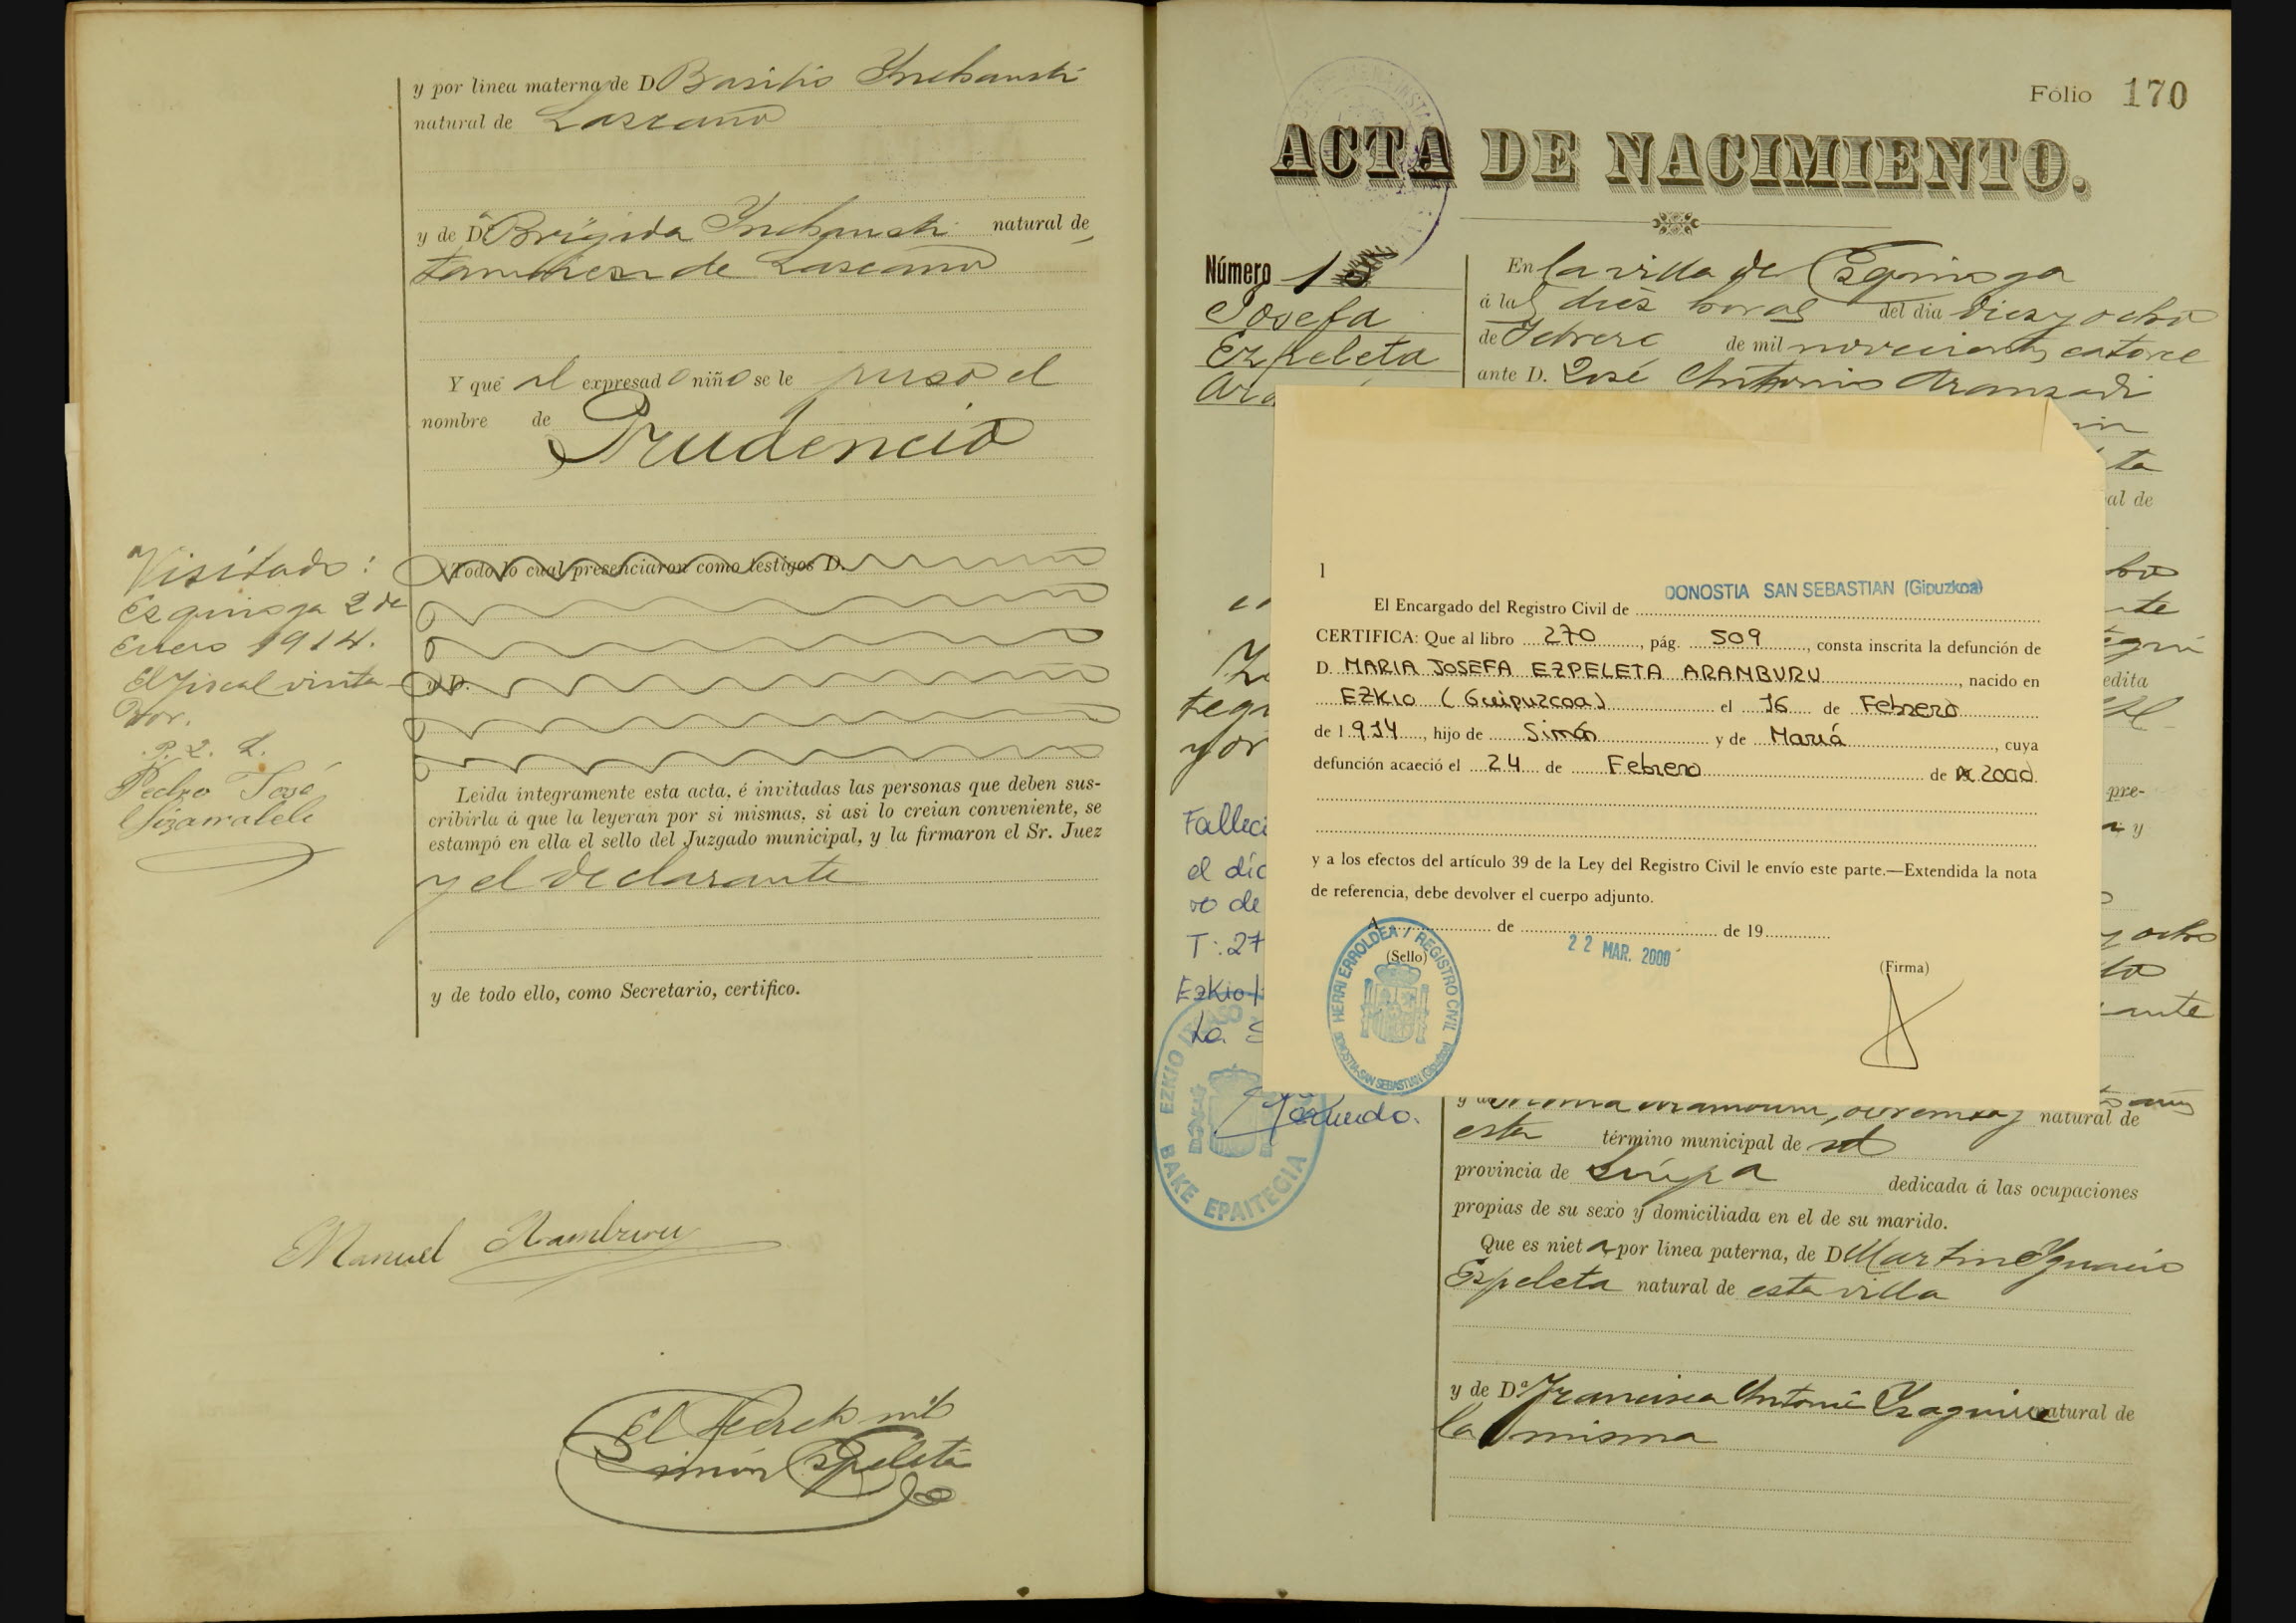 y por linea materna de D Basilio Inchausti
natural de Lazcano
y de Dª Brigida Inchausti natural de
tambien de Lazcano
Y que al expresado niño se le puso el
nombre de
Prudencio
Visitado:
Ezquioga 2 de
Enero 1914.
El fiscal visita
dor.
Pedro José
Todo lo cual presenciaron como testigos D.
y D.
Leida íntegramente esta acta, é invitadas las personas que deben sus-
cribirla á que la leyeran por si mismas, si asi lo creian conveniente, se
estampó en ella el sello del Juzgado municipal, y la firmaron el Sr. Juez
y el declarante
y de todo ello, como Secretario, certifico.
Manuel Aramburu
El Secreto
Simón Ezpeleta
Fólio 170
ACTA DE NACIMIENTO.
Número 1
Josefa
Ezpeleta
Ara
En la villa de Ezquioga
á las diéz horas del dia diez y ocho
de Febrero de mil novecientos catorce
ante D. José Antonio Aranzadi
ta
al de
edita
pre-
y
y ocho
1
DONOSTIA SAN SEBASTIAN (Gipuzkoa)
El Encargado del Registro Civil de
CERTIFICA: Que al libro 270, pág. 509, consta inscrita la defunción de
D. MARIA JOSEFA EZPELETA ARANBURU, nacido en
EZKIO (Guipuzcoa) el 16 de Febrero
de 1.914, hijo de Simón y de María, cuya
defunción acaeció el 24 de Febrero de 2000.
y a los efectos del artículo 39 de la Ley del Registro Civil le envío este parte.—Extendida la nota
de referencia, debe devolver el cuerpo adjunto.
A de de 19
22 MAR. 2000
(Sello)
(Firma)
HERRI ERROLDEA / REGISTRO CIVIL
DONOSTIA-SAN SEBASTIAN (Gipuzkoa)
Falleci
el día
ro de
T: 27
Ezkio
La S
EZKIO
BAKE EPAITEGIA
y de María Aramburu, natural de
esta término municipal de id
provincia de Guipa dedicada á las ocupaciones
propias de su sexo y domiciliada en el de su marido.
Que es nieta por linea paterna, de D Martin Ygnacio
Ezpeleta natural de esta villa
y de Dª Francisca Antonia Yzaguirre natural de
la misma